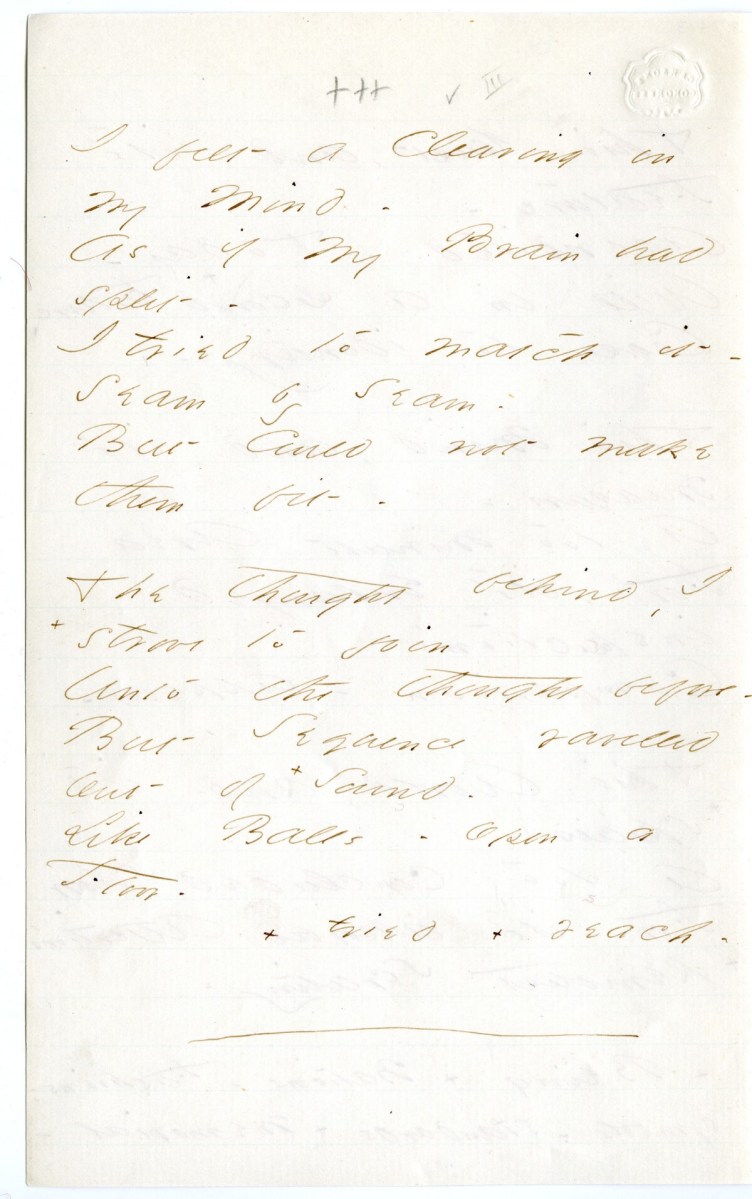 +++ ✓ III
I felt a Clearing in
My Mind -
As if My Brain had
split -
I tried to match it -
Seam by Seam -
But Could not make
them fit -
The thought behind, I
+ strove to join
Unto the thought before -
But Sequence ravelled
Out of + Sound -
Like Balls - Opon a
Floor -
+ tried + reach -